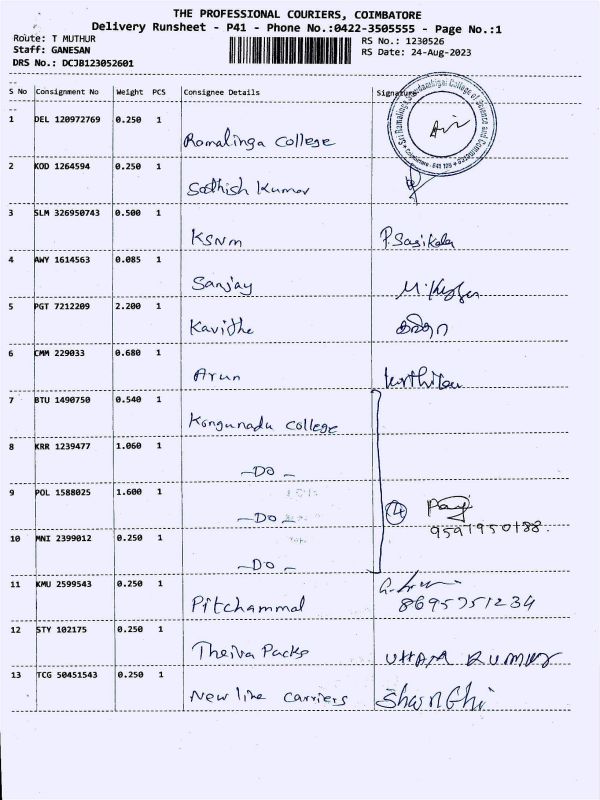 THE PROFESSIONAL COURIERS, COIMBATORE
Delivery Runsheet - P41 - Phone No.:0422-3505555 - Page No.:1
Route: T MUTHUR
RS No.: 1230526
Staff: GANESAN
RS Date: 24-Aug-2023
DRS No.: DCJB123052601
S No Consignment No Weight PCS Consignee Details Signature
1 DEL 120972769 0.250 1
Ramalinga College
2 KOD 1264594 0.250 1
Sathish Kumar
3 SLM 326950743 0.500 1
KSNM P. Sasikala
4 AWY 1614563 0.085 1
Sanjay
5 PGT 7212209 2.200 1
Kavitha
6 CMM 229033 0.680 1
Arun
7 BTU 1490750 0.540 1
Kongunadu College
8 KRR 1239477 1.060 1
-DO-
9 POL 1588025 1.600 1
-DO- 4
9591950188
10 MNI 2399012 0.250 1
-DO-
11 KMU 2599543 0.250 1
Pitchammal 8695751234
12 STY 102175 0.250 1
Theiva Packs UHAA KUMAR
13 TCG 50451543 0.250 1
New line carriers Shanthi